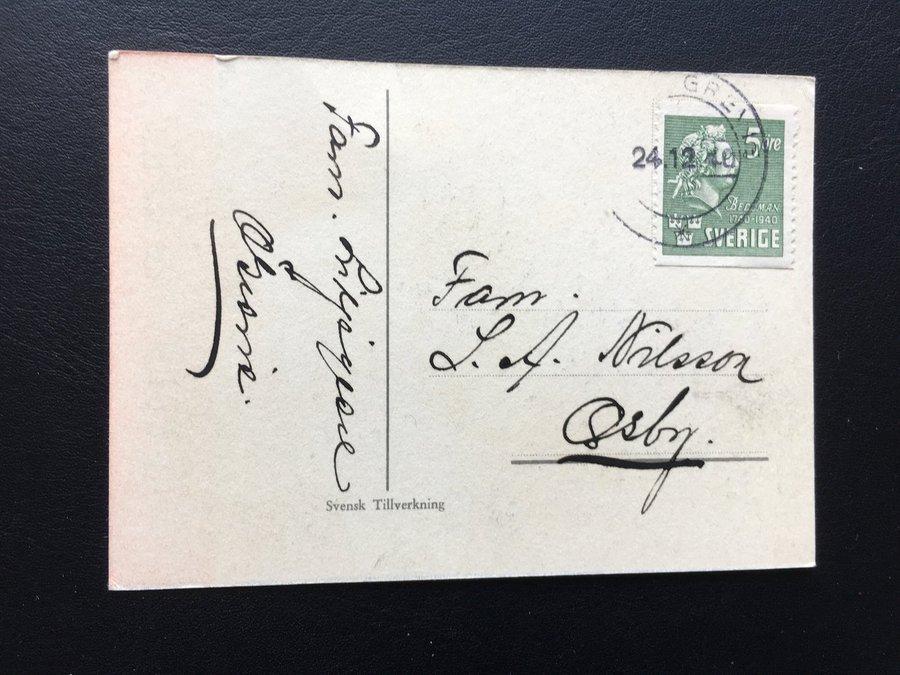 Fam.
24.12.40
5 öre
BELLMAN
1740-1940
SVERIGE
Fam.
L. A. Nilsson
Osby.
Svensk Tillverkning